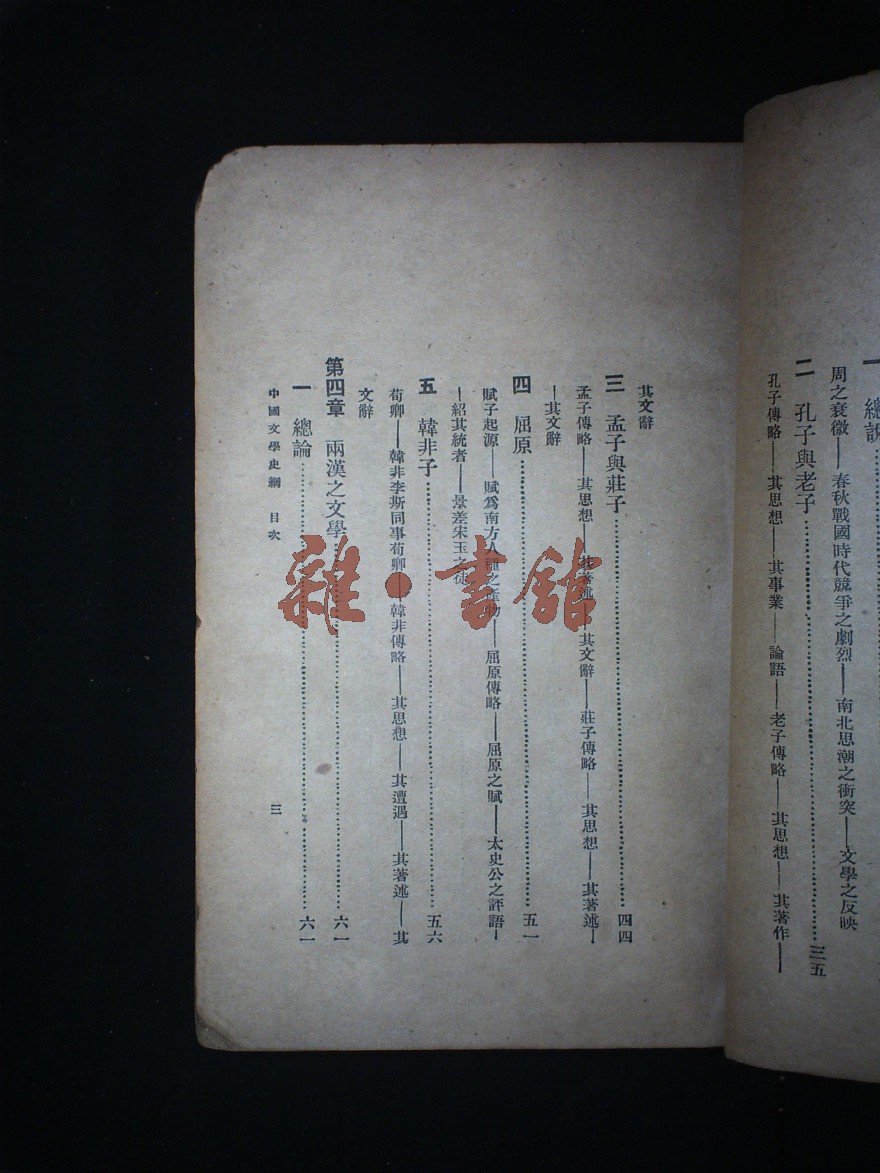 一 總說
周之衰微——春秋戰國時代競爭之劇烈——南北思潮之衝突——文學之反映
二 孔子與老子……三五
孔子傳略——其思想——其事業——論語——老子傳略——其思想——其著作——
其文辭
三 孟子與莊子……四四
孟子傳略——其思想——其著述——其文辭——莊子傳略——其思想——其著述—
—其文辭
四 屈原……五一
賦子起源——賦爲南方人種之產物——屈原傳略——屈原之賦——太史公之評語—
—紹其統者——景差宋玉之徒
五 韓非子……五六
荀卿——韓非李斯同事荀卿——韓非傳略——其思想——其遭遇——其著述——其
文辭
第四章 兩漢之文學……六一
一 總論……六一
中國文學史綱 目次
三
雜·書館